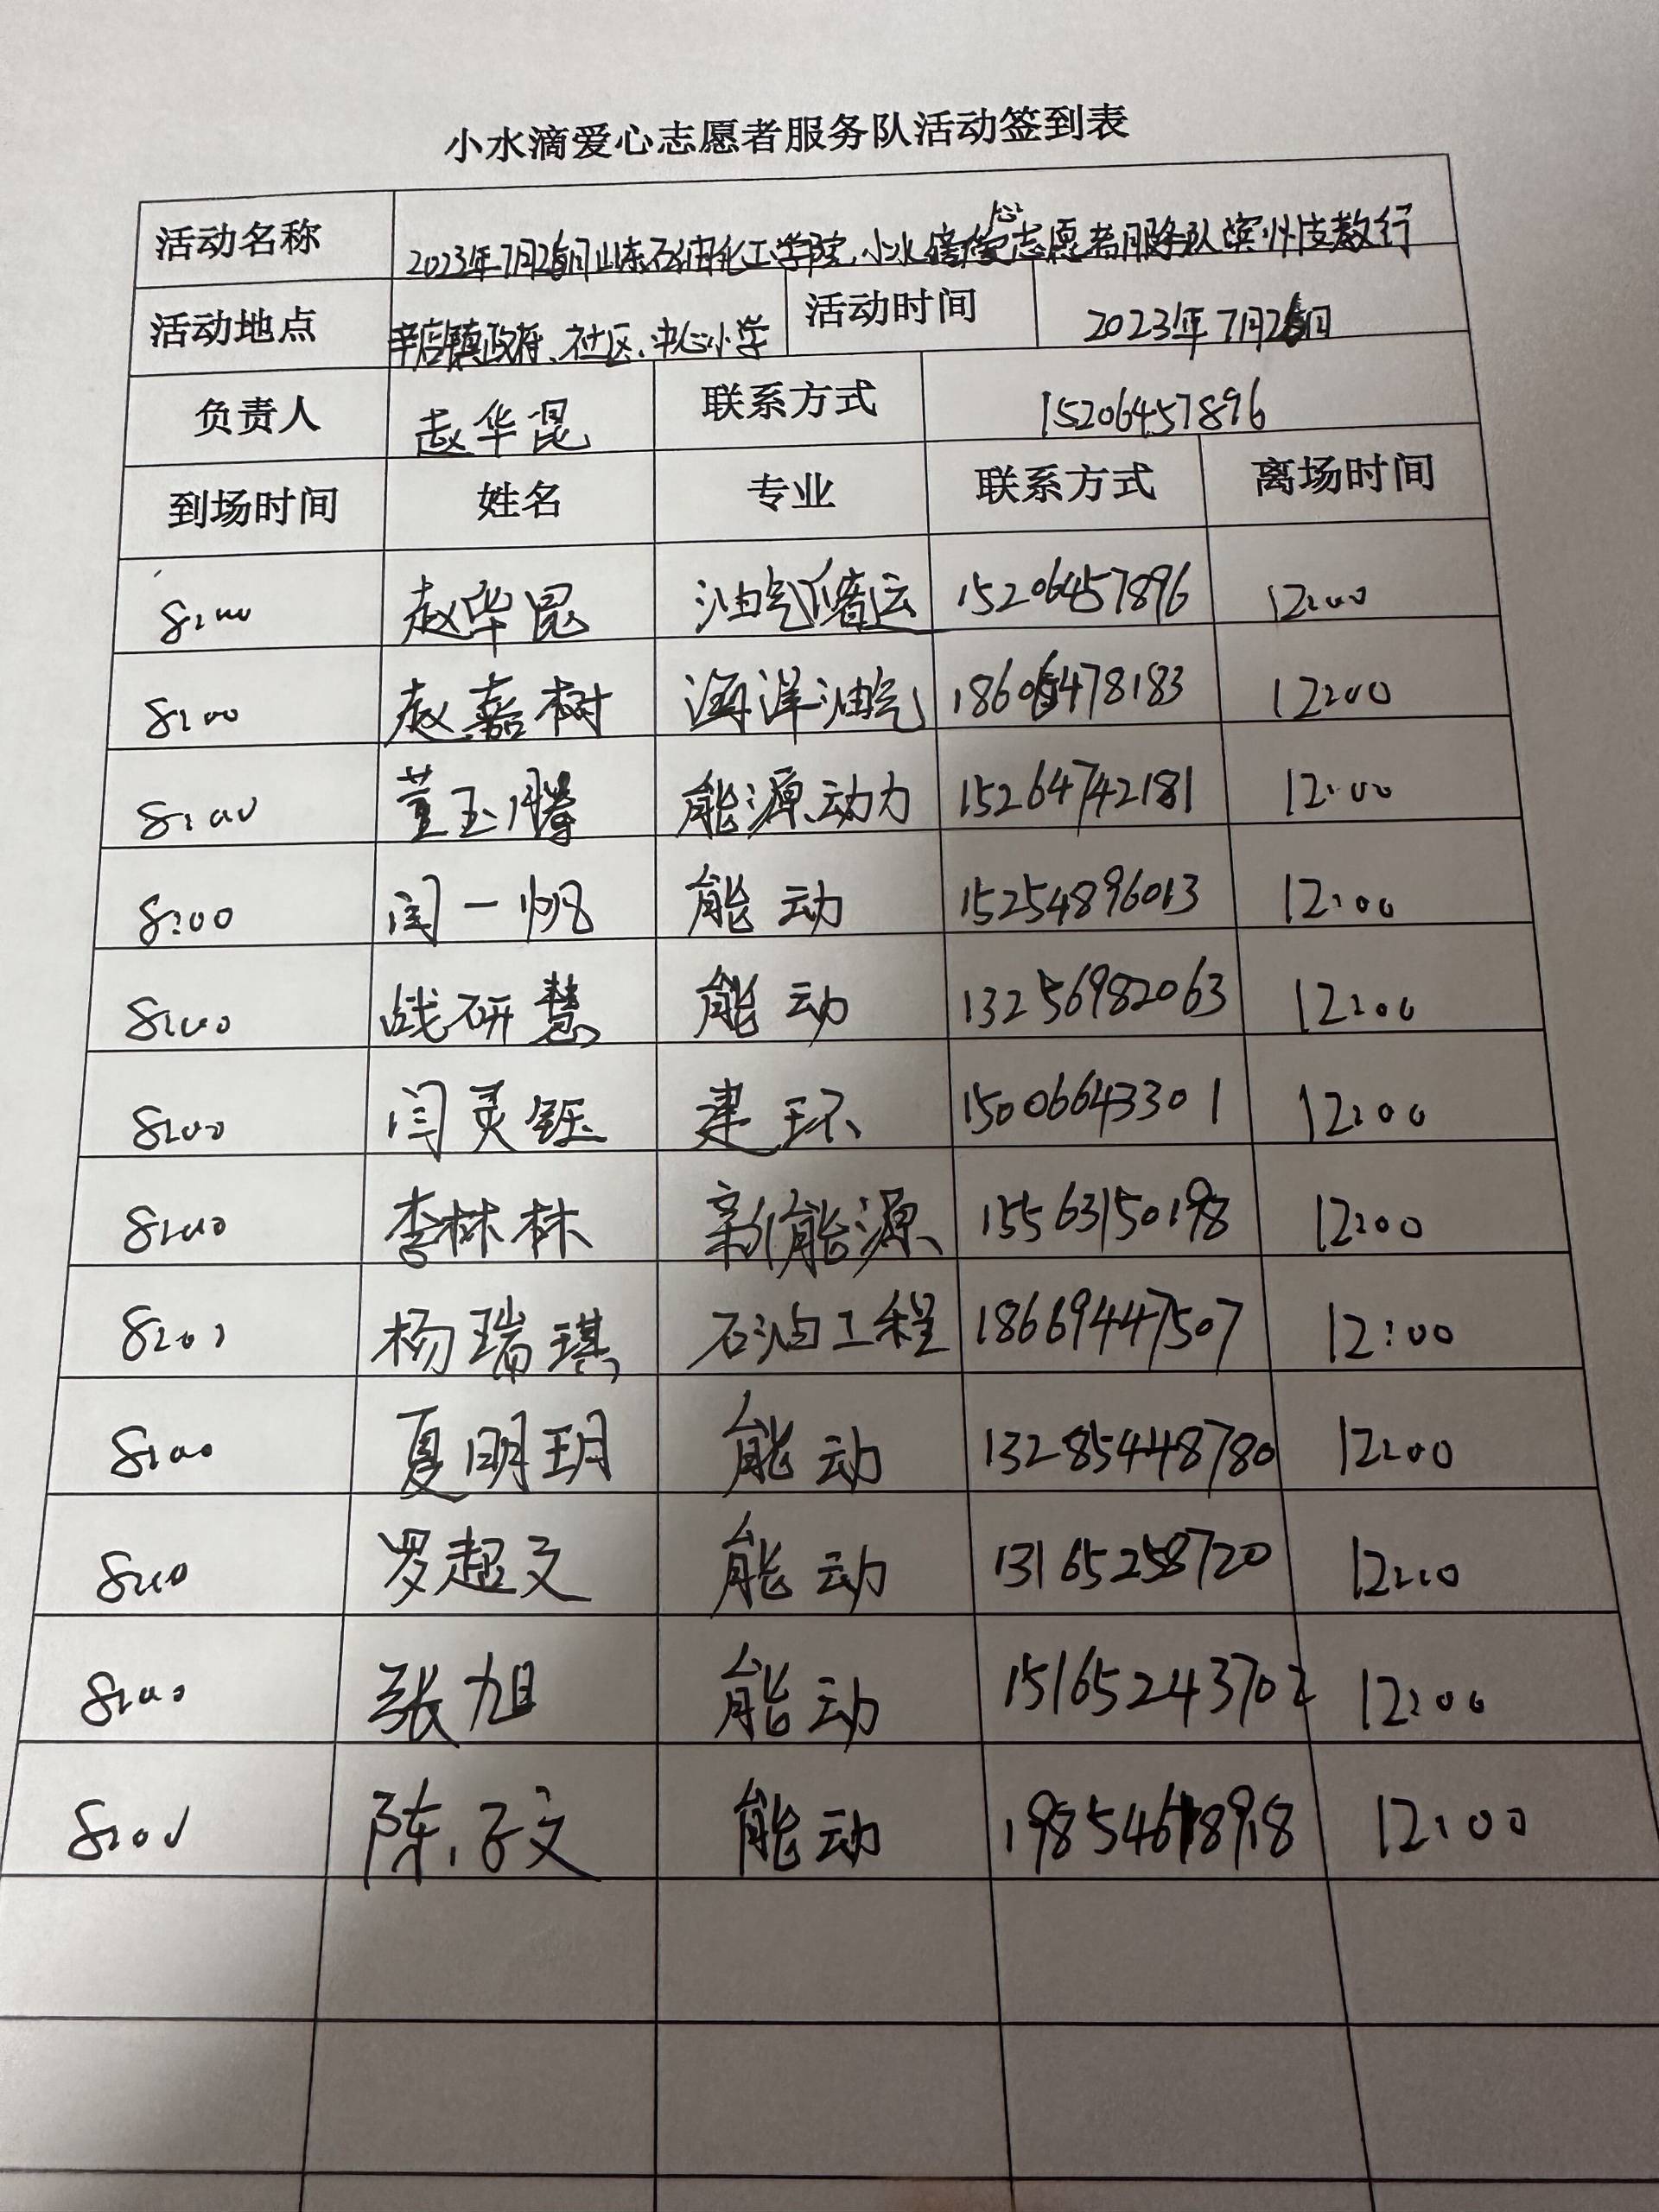 小水滴爱心志愿者服务队活动签到表
活动名称 2023年7月26日山东石油化工学院小水滴爱心志愿者服务队滨州支教行
活动地点 辛店镇政府、社区、中心小学 活动时间 2023年7月26日
负责人 赵华昆 联系方式 15206457896
到场时间 姓名 专业 联系方式 离场时间
8:00 赵华昆 油气储运 15206457896 12:00
8:00 赵嘉树 海洋油气 18606478183 12:00
8:00 董玉腾 能源动力 15264742181 12:00
8:00 闫一帆 能动 15254896013 12:00
8:00 战研慧 能动 13256982063 12:00
8:00 闫灵钰 建环 15006643301 12:00
8:00 李林林 新能源 15563150198 12:00
8:00 杨瑞琪 石油工程 18669447507 12:00
8:00 夏明玥 能动 13285448780 12:00
8:00 罗超文 能动 13165258720 12:00
8:00 张旭 能动 15165243702 12:00
8:00 陈子文 能动 19854618918 12:00